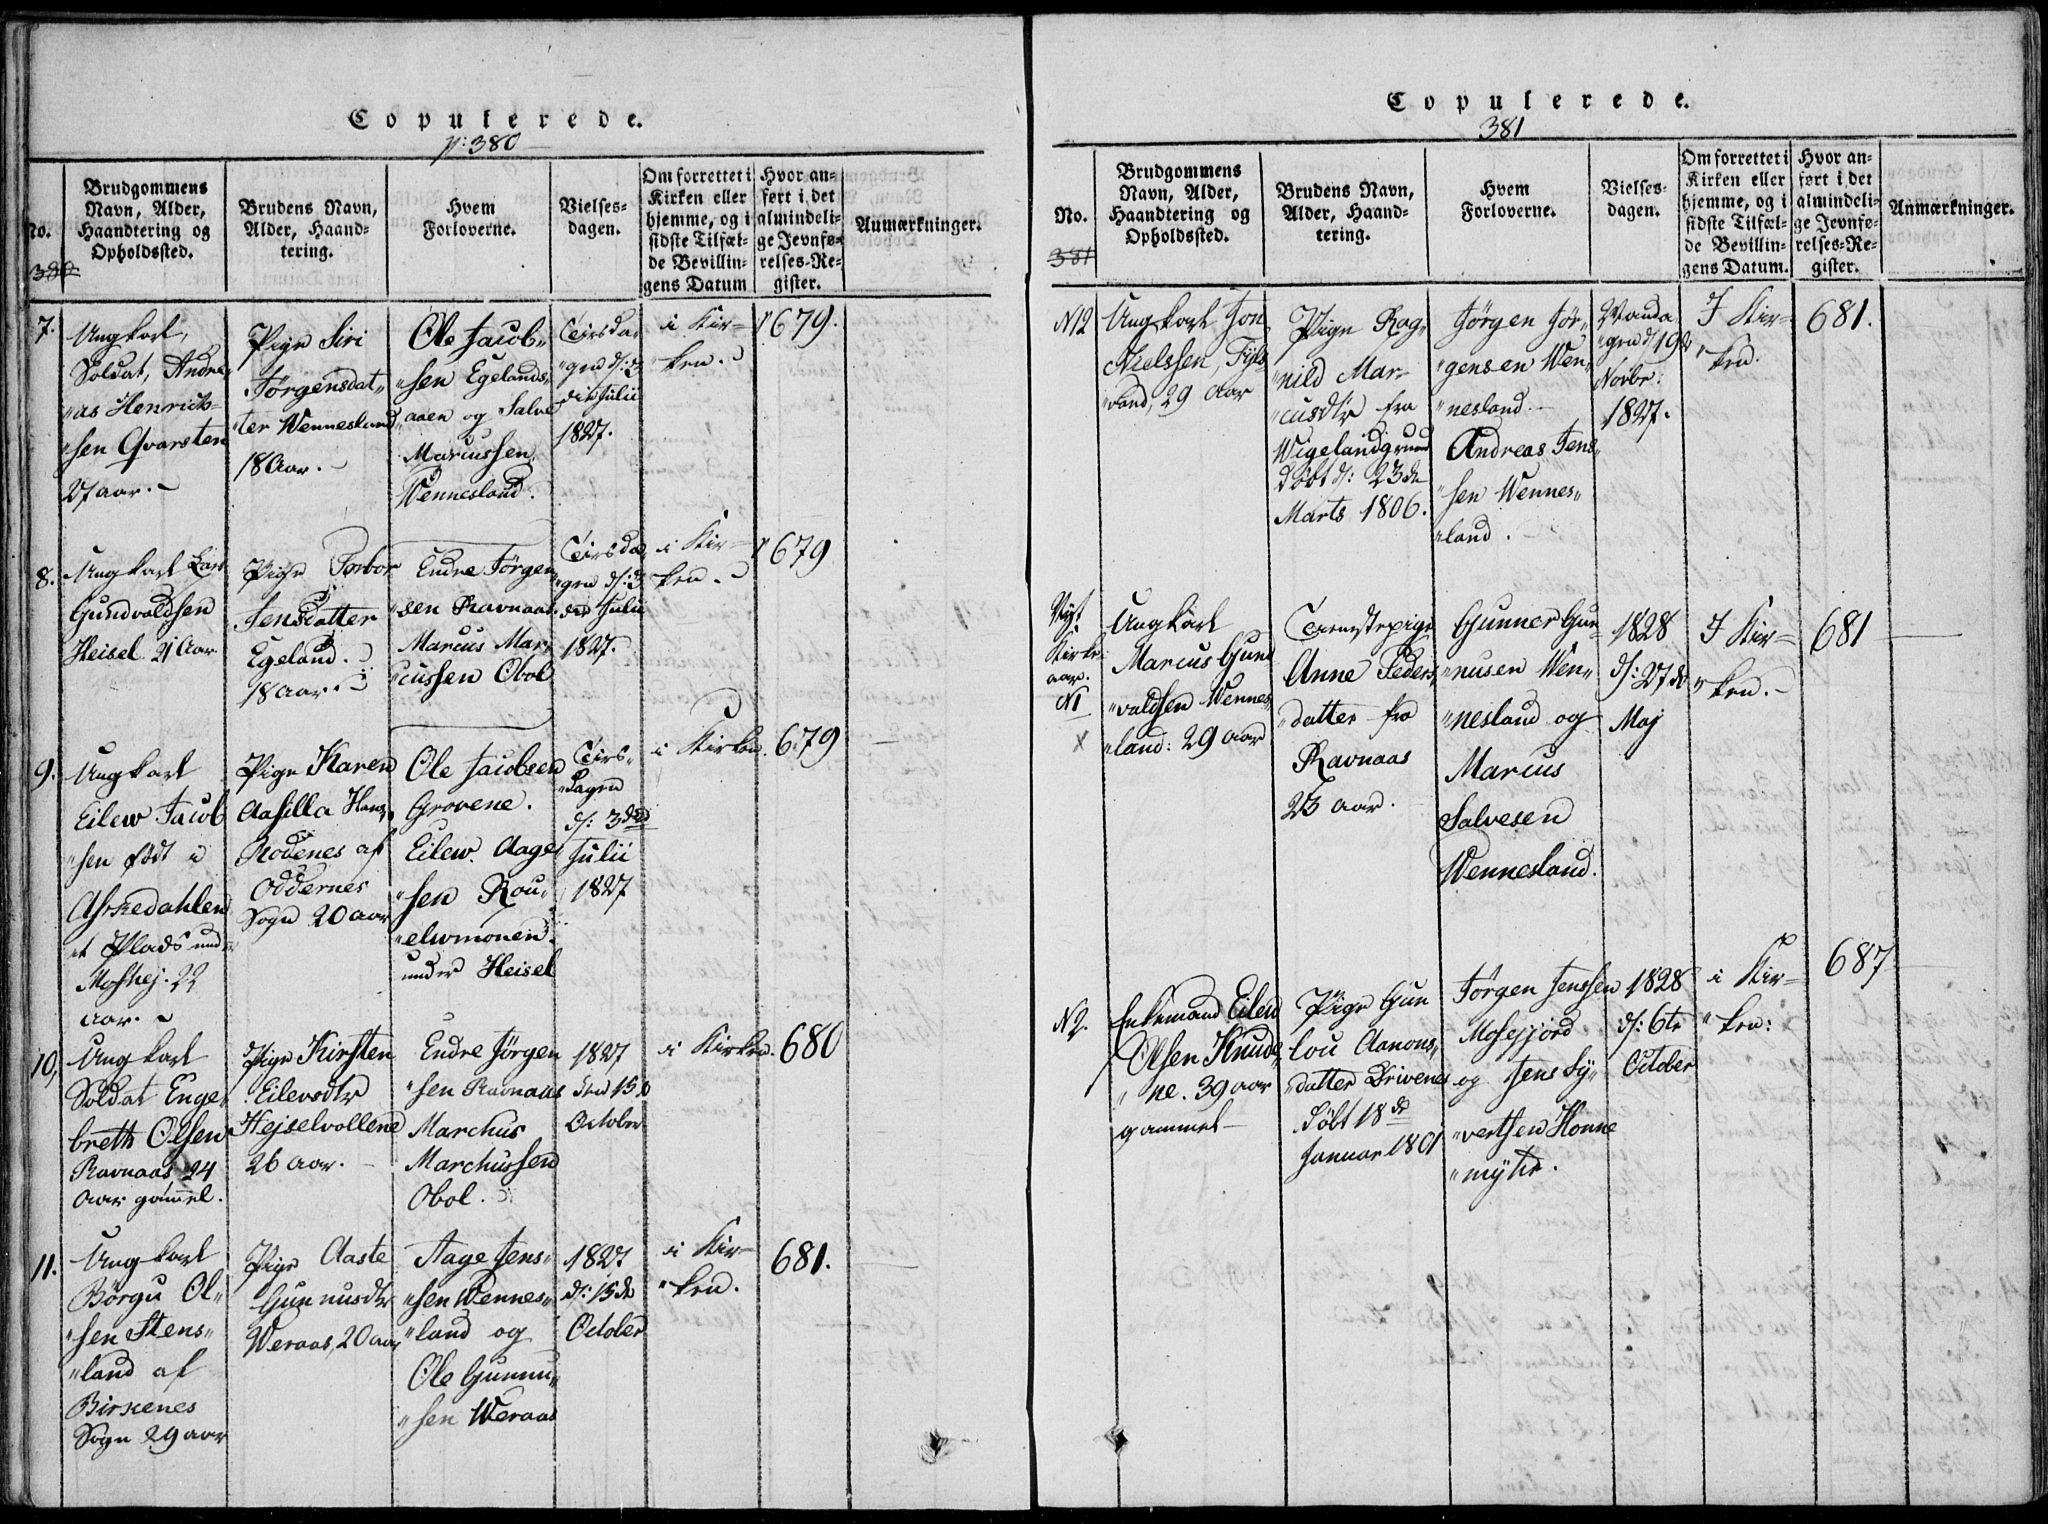 Copulerede.
p: 380
No.
380
Brudgommens
Navn, Alder,
Haandtering og
Opholdssted.
Brudens Navn,
Alder, Haand-
tering.
Hvem
Forloverne.
Vielses-
dagen.
Om forrettet i
Kirken eller
hjemme, og i
sidste Tilfæl-
de Bevillin-
gens Datum
Hvor an-
ført i det
almindeli-
ge Jevnfø-
relses-Re-
gister.
Anmærkninger.
7.
Ungkarl,
Soldat, Andre-
"as Henrick-
"sen Qvarsten
27 aar.
Pige Siri
Jørgensdat-
"ter Wennesland
18 Aar.
Ole Jacob-
"sen Egelands-
"aaen og Salve
Marcussen
Wennesland.
Tirsda-
"gen d: 3
die Julii
1827.
i Kir-
"ken.
679.
8.
Ungkarl Lars
Gundvaldsen
Heisel 21 Aar
Pige Torbor
Jensdatter
Egeland.
18 aar.
Endre Jørgen-
"sen Ravnaas
Marcus Mar-
"cussen Obol
Tirsda-
"gen d: 3
die Julii
1827.
i Kir-
ken.
679
9.
Ungkarl
Eilew Jacob
"sen født i
Askedahlen
et Plads und-
Moshej. 22
aar.
Pige Karen
Aasilla Hans
Rodenes af
Oddernes
Sogn 20 aar
Ole Jacobsen
Grovene.
Eilew Aage
"sen Rou-
"elwmonen
under Heisel
Tirs-
"dagen
d: 3die
Julii
1827
i Kirken.
679
10,
Ungkarl
Soldat Enge-
breth Olsen
Ravnaas 24
Aar gammel.
Pige Kirsten
Eilevsdtr
Hejselvollene
26 aar.
Endre Jørgen
"sen Ravnaas
Marchus
Marchussen
Obol.
1827
den 15de
October
i Kirken.
680
11.
Ungkarl
Börgu Ol-
"sen Stens-
"land af
Birkenes
Sogn 29 aar
Pige Aaste
Gunnusdtr
Weraas, 20 aar
Aage Jens-
"sen Wennes-
"land og
Ole Gunnu-
"sen Weraas
1827
d: 15de
October
i Kir-
"ken.
681.
Copulerede.
381
No.
381
Brudgommens
Navn, Alder,
Haandtering og
Opholdssted.
Brudens Navn,
Alder, Haand-
tering.
Hvem
Forloverne.
Vielses-
dagen.
Om forrettet i
Kirken eller
hjemme, og i
sidste Tilfæl-
de Bevillin-
gens Datum.
Hvor an-
ført i det
almindeli-
ge Jevnfø-
relses-Re-
gister.
Anmærkninger.
N12
Ungkarl Jon
Nielssen,
29 aar
Pige Rag-
"nild Mar-
"cusdtr fra
Wigelandgrund
døbt d: 23de
Marts 1806.
Jörgen Jör-
"gensen Wen-
"nesland.
Andreas Jens-
"sen Wennes-
"land.
Manda
"gen d 19de
Novbr:
1827.
I Kir-
"ken.
681.
Nyt
Kirke-
aar.
N1
X
Ungkarl
Marcus Gund
"valdsen Wennes-
"land: 29 aar
Tienestepige
Anne Peders-
"datter fra
Ravnaas
23 aar.
Gunner Gun-
"nusen Wen-
"nesland og
Marcus
Salvesen
Wennesland.
1828
d: 27de
Maj
I Kir-
"ken.
681
N2.
Enkemand Eilew
Olsen Knude-
"ne. 39 aar
gammel
Pige Gun
lou Aanons-
"datter Drivenes
døbt 18de
Januar 1801
Jørgen Jenssen
Mosefjord
og Jens Sy-
"vertsen Honne
"myhr.
1828
d: 6te
October
i Kir-
"ken:
687